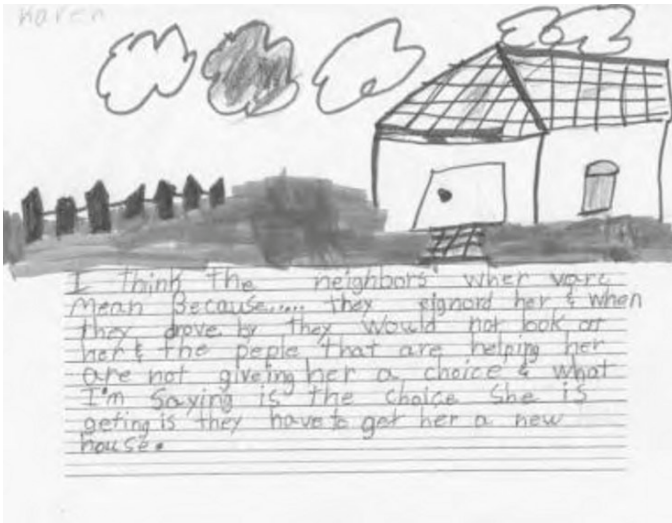 Karen
I think the neighbors' wher vare
Mean Because..... they eignord her & when
they drove by they would not look at
her & the peple that are helping her
are not giveing her a choice & what
I'm Saying is the choice She is
geting is they have to get her a new
house.